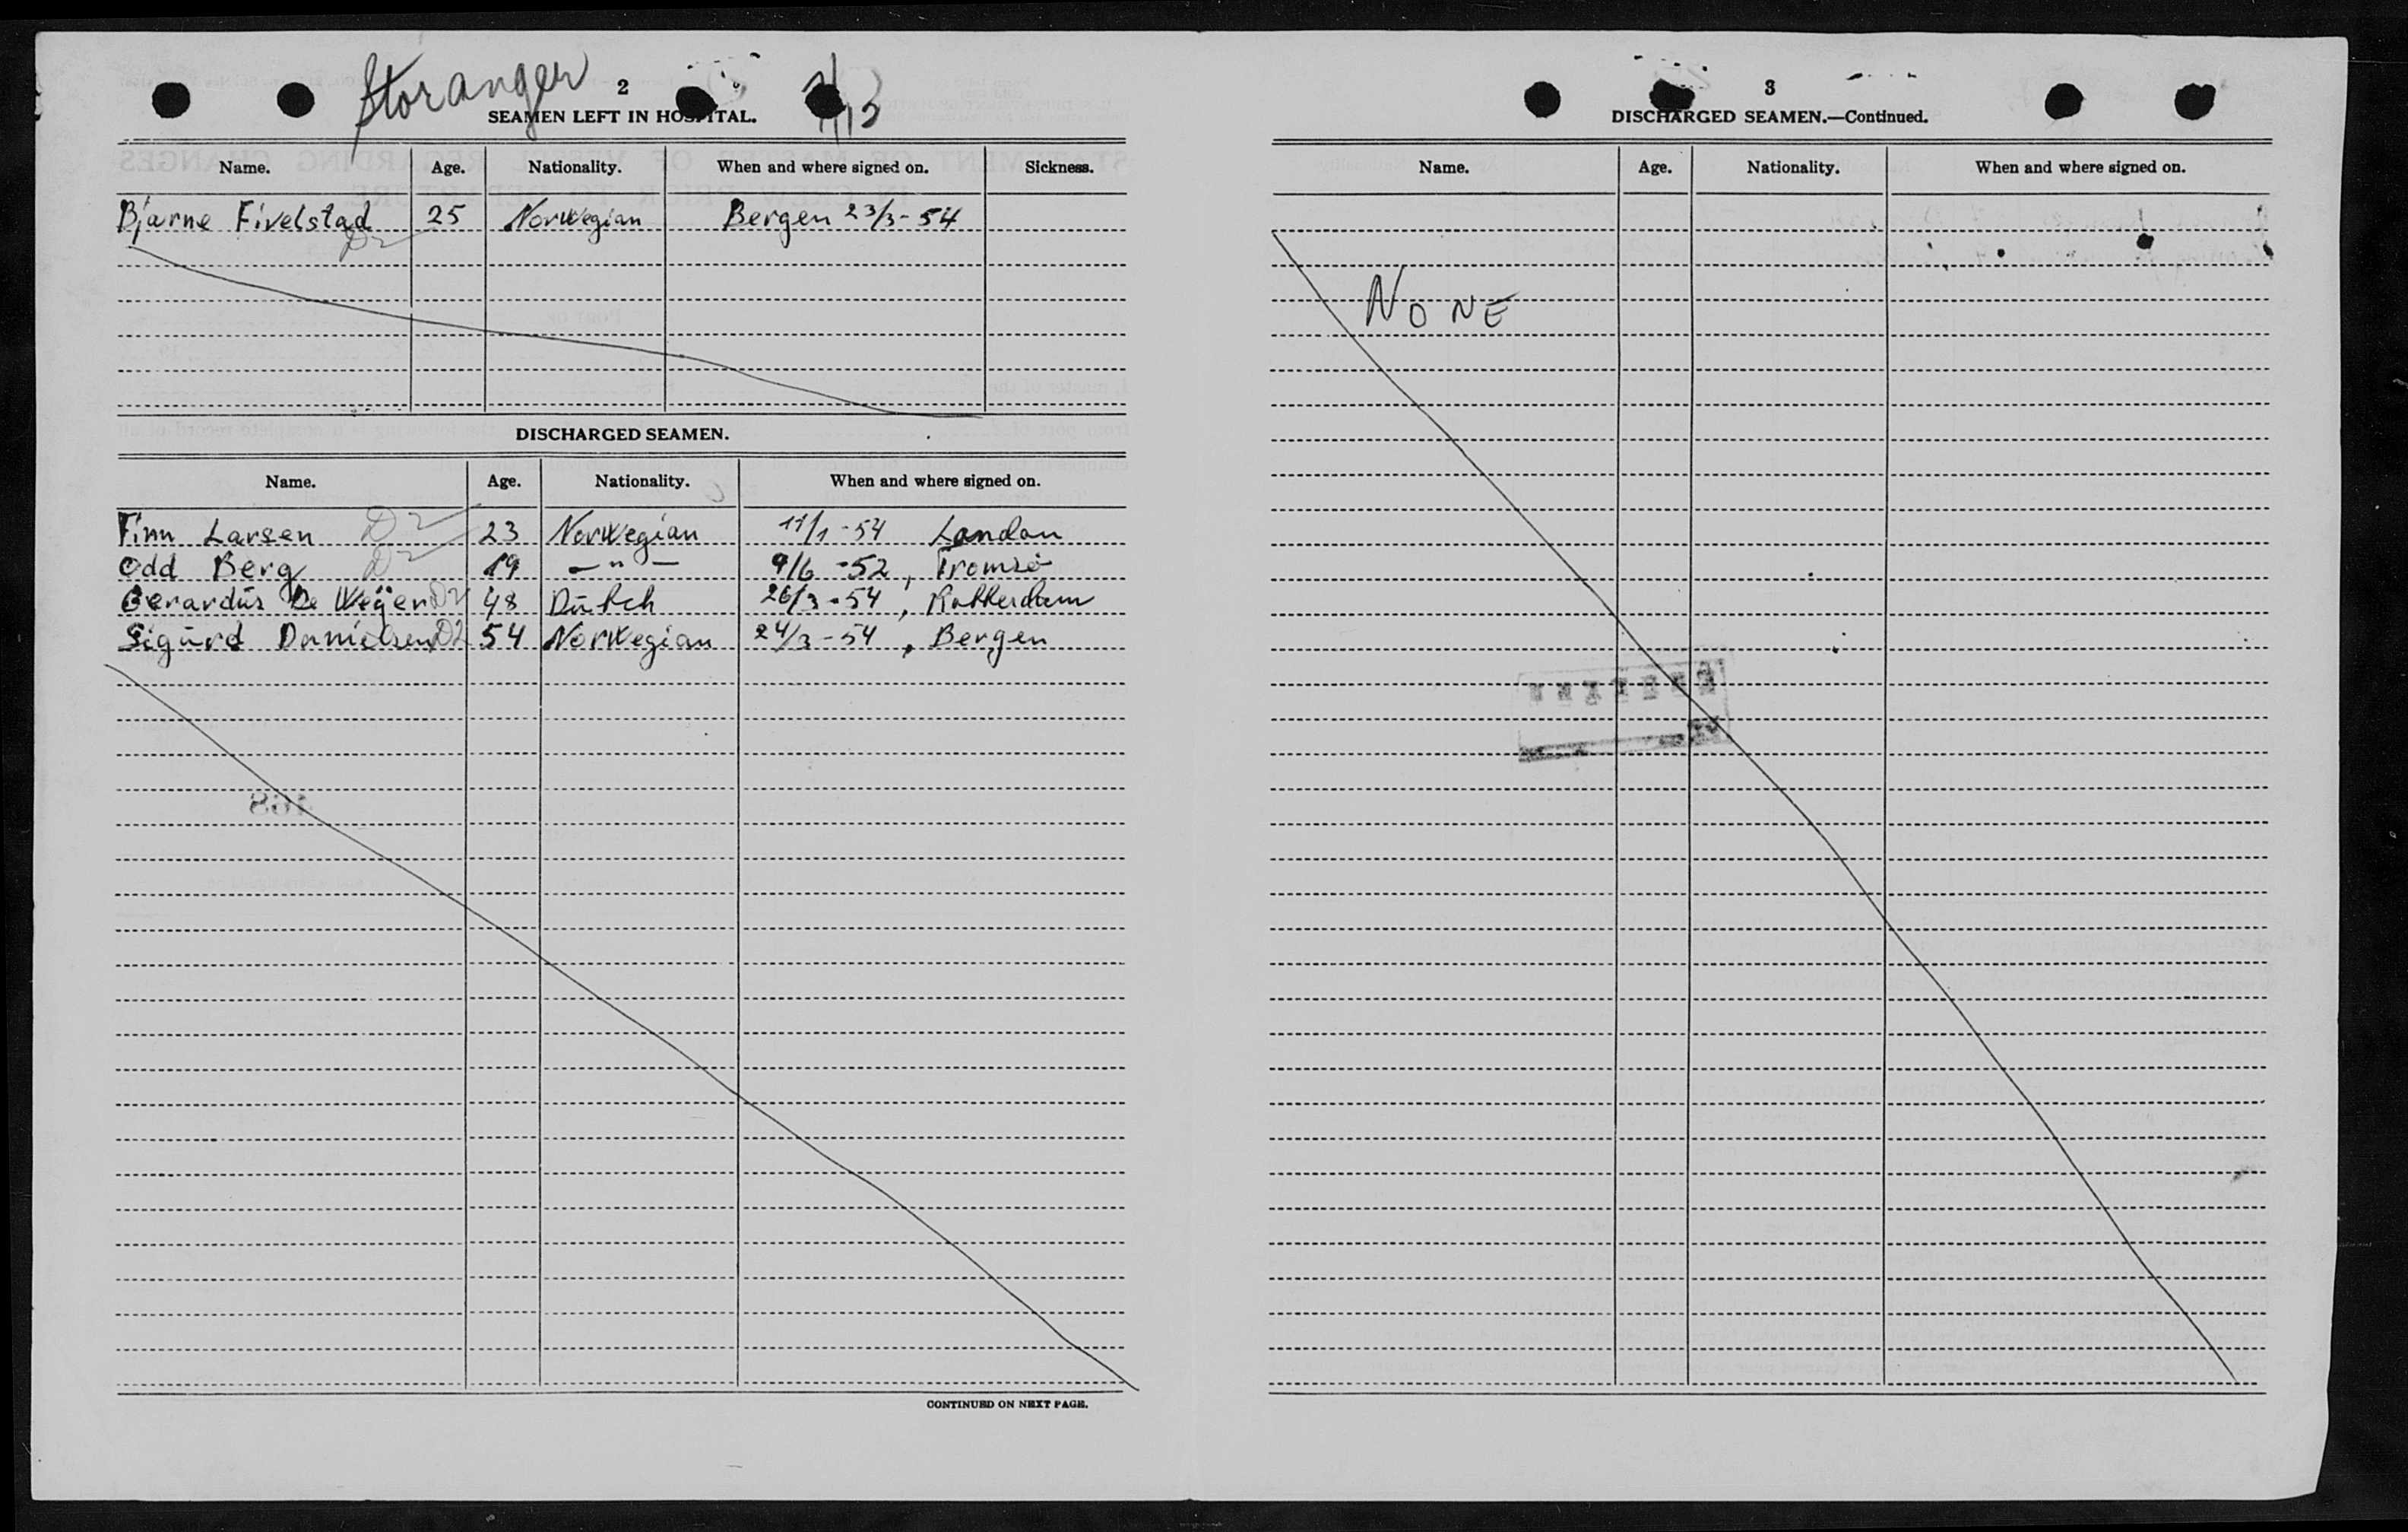 Storanger
2
SEAMEN LEFT IN HOSPITAL.
Name. Age. Nationality. When and where signed on. Sickness.
Bjarne Fivelstad 25 Norwegian Bergen 23/3-54
D2
DISCHARGED SEAMEN.
Name. Age. Nationality. When and where signed on.
Finn Larsen D2 23 Norwegian 11/1-54 London
Odd Berg D2 19 -"- 9/6-52, Tromsö
Gerardus De Weÿer D2 48 Dutch 26/3-54, Rotterdam
Sigurd Danielsen D2 54 Norwegian 24/3-54, Bergen
168
CONTINUED ON NEXT PAGE.
3
DISCHARGED SEAMEN.—Continued.
Name. Age. Nationality. When and where signed on.
NONE